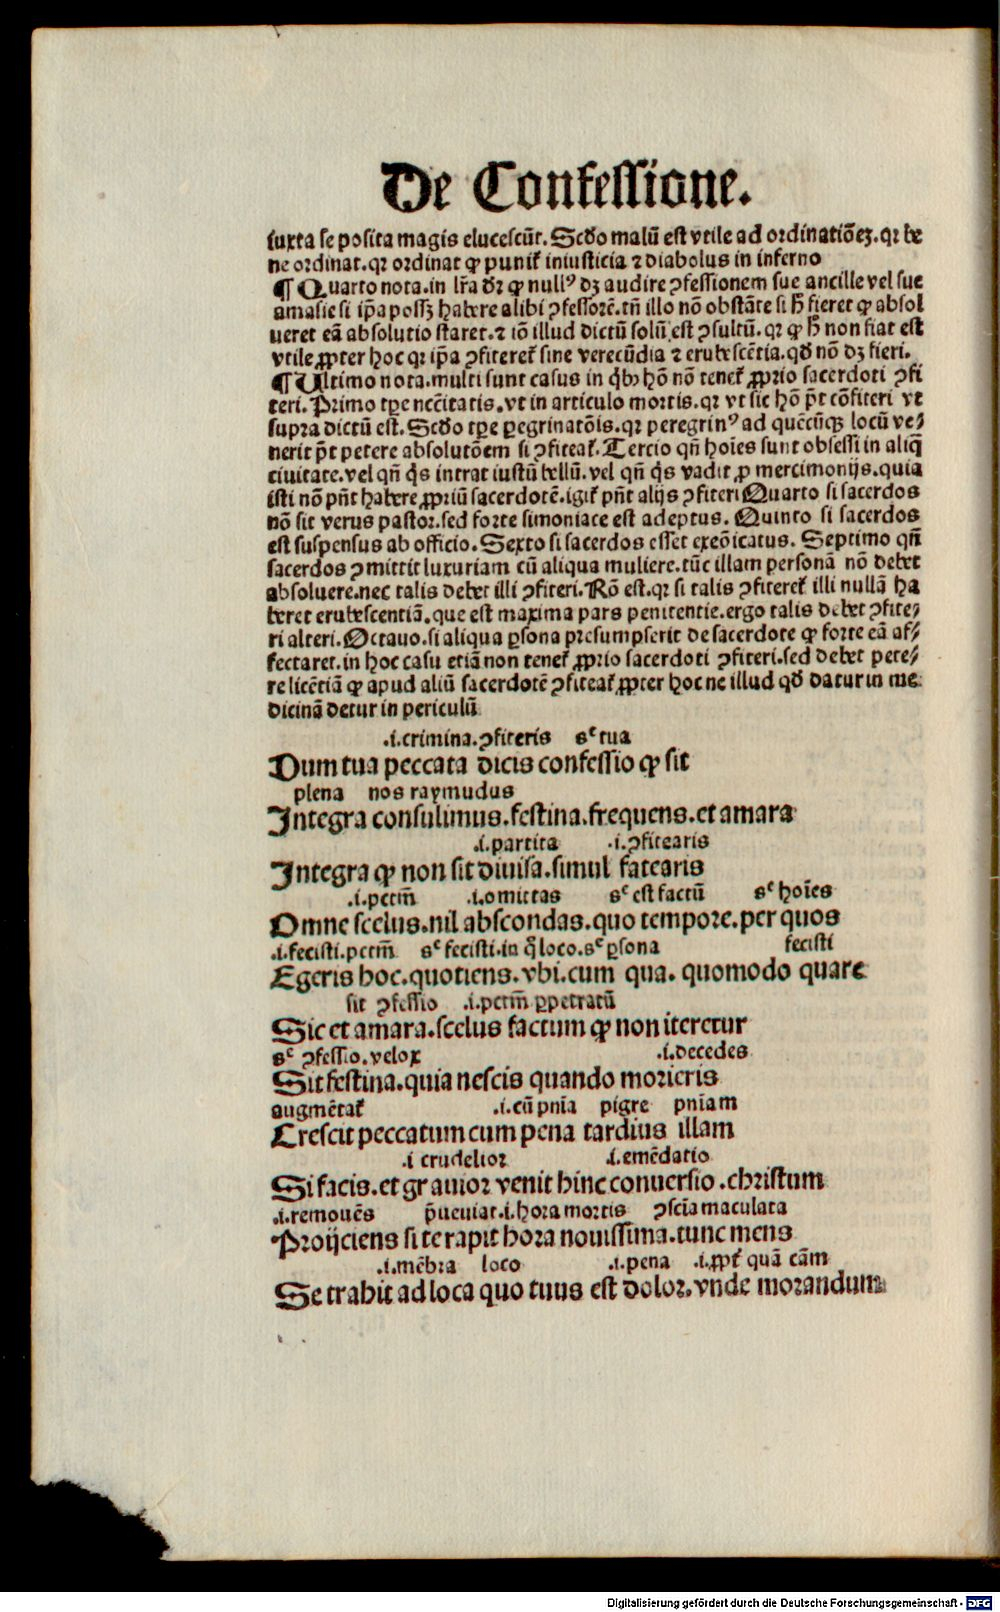 De Confessione.
iuxta se posita magis elucescūt. Scd̄o malū est vtile ad ordinationēꝫ. qꝛ be
ne ordinat. qꝛ ordinat ꝙ punit̄ iniusticia ⁊ diabolus in inferno
¶ Quarto nota. in lr̄a dr̄ ꝙ nullꝰ dꝫ audire ↄfessionem sue ancille vel sue
amasie si ip̄a possꝫ habere alibi ↄfessorē. tn̄ illo nō obstāte si h̄ fieret ꝙ absol
ueret eā absolutio staret. ⁊ iō illud dictū solū est ↄsultū. qꝛ ꝙ h̄ non fiat est
vtile ꝓpter hoc qꝛ ip̄a ↄfiteret̄ sine verecūdia ⁊ erubescētia. qd̄ nō dꝫ fieri.
¶ Ultimo nota. multi sunt casus in qb̄ꝫ hō nō tenet̄ ꝓprio sacerdoti ↄfi
teri. Primo tꝑe necc̄itatis. vt in articulo mortis. qꝛ vt sic hō p̄t cōfiteri vt
supra dictū est. Scd̄o tꝑe ꝑegrinatōis. qꝛ peregrinꝰ ad quēcūqꝫ locū ve⸗
nerit p̄t petere absolutōem si ↄfiteat̄. Tercio qn̄ hoīes sunt obsessi in aliq̄
ciuitate. vel qn̄ q̄s intrat iustū bellū. vel qn̄ q̄s vadit ꝓ mercimonijs. quia
isti nō pn̄t habere ꝓpriū sacerdotē. igit̄ pn̄t alijs ↄfiteri Quarto si sacerdos
nō sit verus pastor. sed forte simoniace est adeptus. Quinto si sacerdos
est suspensus ab officio. Sexto si sacerdos esset exeōicatus. Septimo qn̄
sacerdos ↄmittit luxuriam cū aliqua muliere. tūc illam personā nō debet
absoluere. nec talis debet illi ↄfiteri. Rō est. qꝛ si talis ↄfiteret̄ illi nullā ha
beret erubescentiā. que est maxima pars penitentie. ergo talis debet ↄfite⸗
ri alteri. Octauo. si aliqua ꝑsona presumpserit de sacerdote ꝙ forte eā af⸗
fectaret. in hoc casu etiā non tenet̄ ꝓprio sacerdoti ↄfiteri. sed debet pete⸗
re licētiā ꝙ apud aliū sacerdotē ↄfiteat̄ ꝓpter hoc ne illud qd̄ datur in me
dicinā detur in periculū
.i. crimina. ↄfiteris sᶜ tua
Dum tua peccata dicis confessio ꝙ sit
plena nos raymudus
Integra consulimus. festina. frequens. et amara
.i. partita .i. ↄfitearis
Integra ꝙ non sit diuisa. simul fatearis
.i. pctm̄ .i. omittas sᶜ est factū sᶜ hoīes
Omne scelus. nil abscondas. quo tempore. per quos
.i. fecisti. pctm̄ sᶜ fecisti. in q̄ loco. sᶜ ꝑsona fecisti
Egeris hoc. quotiens. vbi. cum qua. quomodo quare
sit ↄfessio .i. pctm̄ ꝑpetratū
Sic et amara. scelus factum ꝙ non iteretur
sᶜ ↄfessio. velox .i. decedes
Sit festina. quia nescis quando morieris
augmētat̄ .i. cū pnīa pigre pnīam
Crescit peccatum cum pena tardius illam
.i crudelior .i. emēdatio
Si facis. et grauior venit hinc conuersio. christum
.i. remouēs p̄ueniat. i. hora mortis ↄscīa maculata
Proijciens si te rapit hora nouissima. tunc mens
.i. mēbra loco .i. pena .i. ꝓpt̄ quā cām
Se trahit ad loca quo tuus est dolor. vnde morandum
Digitalisierung gefördert durch die Deutsche Forschungsgemeinschaft - DFG